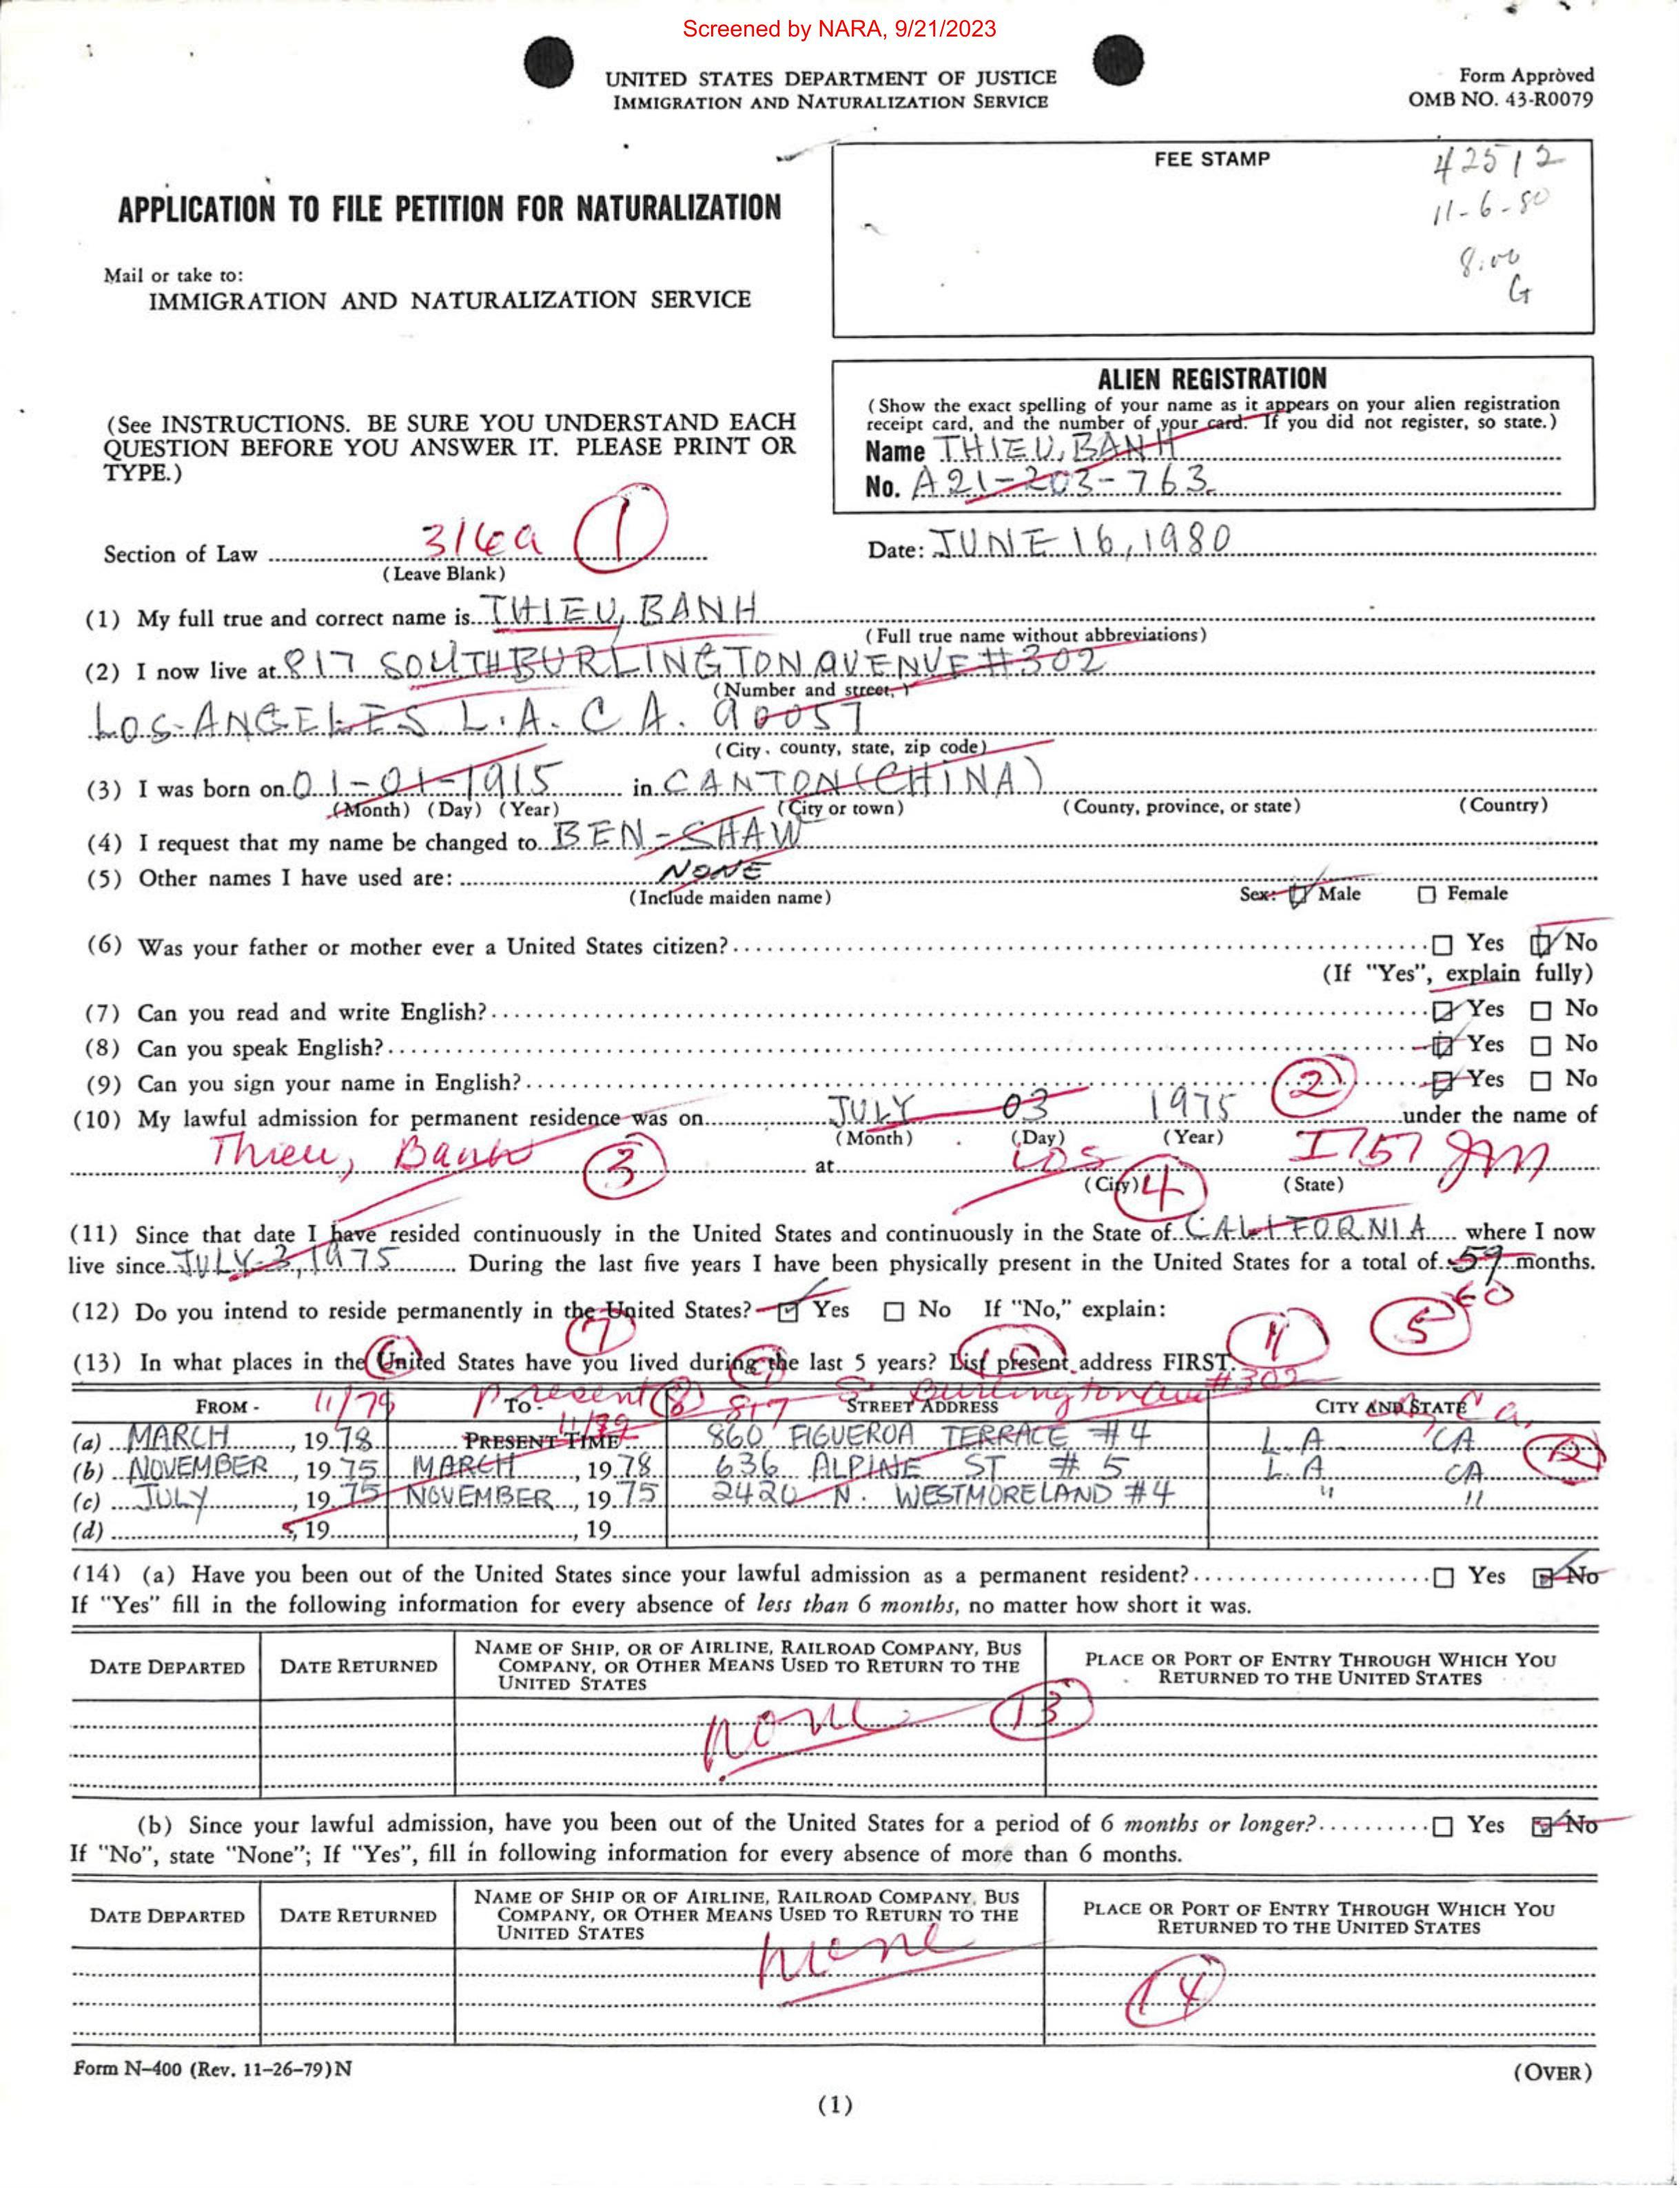 Screened by NARA, 9/21/2023
UNITED STATES DEPARTMENT OF JUSTICE
IMMIGRATION AND NATURALIZATION SERVICE
Form Approved
OMB NO. 43-R0079
FEE STAMP
42512
11-6-80
8.00
G
APPLICATION TO FILE PETITION FOR NATURALIZATION
Mail or take to:
IMMIGRATION AND NATURALIZATION SERVICE
(See INSTRUCTIONS. BE SURE YOU UNDERSTAND EACH
QUESTION BEFORE YOU ANSWER IT. PLEASE PRINT OR
TYPE.)
ALIEN REGISTRATION
(Show the exact spelling of your name as it appears on your alien registration
receipt card, and the number of your card. If you did not register, so state.)
Name THIEU, BANH
No. A21-203-763
Section of Law 316a (1)
(Leave Blank)
Date: JUNE 16, 1980
(1) My full true and correct name is THIEU, BANH
(Full true name without abbreviations)
(2) I now live at 817 SOUTH BURLINGTON AVENUE #302
(Number and street,)
LOS-ANGELES L.A. CA. 90057
(City, county, state, zip code)
(3) I was born on 01-01-1915 in CANTON (CHINA)
(Month) (Day) (Year) (City or town) (County, province, or state) (Country)
(4) I request that my name be changed to BEN-SHAW
(5) Other names I have used are: NONE
(Include maiden name) Sex: Male Female
(6) Was your father or mother ever a United States citizen? Yes No
(If "Yes", explain fully)
(7) Can you read and write English? Yes No
(8) Can you speak English? Yes No
(9) Can you sign your name in English? (2) Yes No
(10) My lawful admission for permanent residence was on JULY 03 1975 under the name of
(Month) (Day) (Year)
Thieu, Banh (3) at LOS I 151
(City) (4) (State)
(11) Since that date I have resided continuously in the United States and continuously in the State of CALIFORNIA where I now
live since JULY-3, 1975 During the last five years I have been physically present in the United States for a total of 59 months.
60
(12) Do you intend to reside permanently in the United States? Yes No If "No," explain: (5)
(7) (11)
(13) In what places in the United States have you lived during the last 5 years? List present address FIRST.
(6) (9) (10)
FROM - 11/79 TO - Present (8) 817 S. Burlington Ave #302 STREET ADDRESS CITY AND STATE
(a) MARCH, 1978 PRESENT TIME 860 FIGUEROA TERRACE #4 L.A CA
(b) NOVEMBER, 1975 MARCH, 1978 636 ALPINE ST #5 L.A CA (12)
(c) JULY, 1975 NOVEMBER, 1975 2420 N. WESTMORELAND #4 " "
(d) , 19 , 19
(14) (a) Have you been out of the United States since your lawful admission as a permanent resident? Yes No
If "Yes" fill in the following information for every absence of less than 6 months, no matter how short it was.
DATE DEPARTED DATE RETURNED NAME OF SHIP, OR OF AIRLINE, RAILROAD COMPANY, BUS COMPANY, OR OTHER MEANS USED TO RETURN TO THE UNITED STATES PLACE OR PORT OF ENTRY THROUGH WHICH YOU RETURNED TO THE UNITED STATES
none (13)
(b) Since your lawful admission, have you been out of the United States for a period of 6 months or longer? Yes No
If "No", state "None"; If "Yes", fill in following information for every absence of more than 6 months.
DATE DEPARTED DATE RETURNED NAME OF SHIP OR OF AIRLINE, RAILROAD COMPANY, BUS COMPANY, OR OTHER MEANS USED TO RETURN TO THE UNITED STATES PLACE OR PORT OF ENTRY THROUGH WHICH YOU RETURNED TO THE UNITED STATES
none (14)
Form N-400 (Rev. 11-26-79)N
(OVER)
(1)